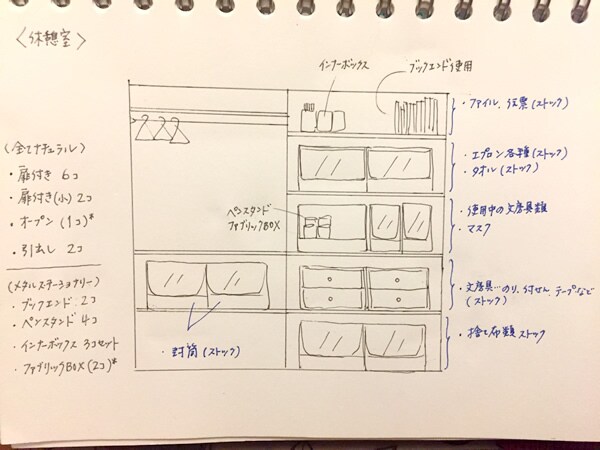 〈休憩室〉
インナーボックス
ブックエンド使用
・ファイル、伝票(ストック)
(全てナチュラル)
・扉付き 6コ
・扉付き(小) 2コ
・オープン (1コ)*
・引出し 2コ
・エプロン各種(ストック)
・タオル(ストック)
ペンスタンド
ファブリックBOX
・使用中の文房具類
・マスク
(メタルステーショナリー)
・ブックエンド 2コ
・ペンスタンド 4コ
・インナーボックス 3コセット
・ファブリックBOX(2コ)*
・文房具…のり、付せん、テープなど
(ストック)
・封筒(ストック)
・捨て布類ストック